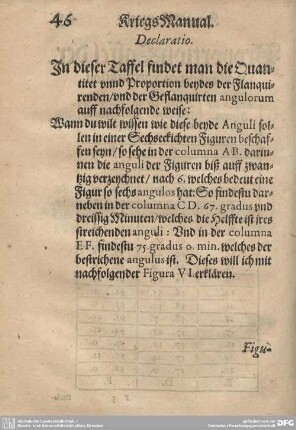 46 Kriegs Manual.
Declaratio.
In dieser Taffel findet man die Quan-
titet vnnd Proportion beydes der Flanqui-
renden/vnd der Geflanquirten angulorum
auff nachfolgende weise:
Wann du wilt wissen wie diese beyde Anguli sol-
len in einer Sechseckichten Figuren beschaf-
fen seyn/ so sehe in der columna A B. darin-
nen die anguli der Figuren biß auff zwan-
tzig verzeychnet/ nach 6. welches bedeut eine
Figur so sechs angulos hat: So findestu dar-
neben in der columna C D. 67. gradus vnd
dreissig Minuten/welches die Helffte ist jres
streichenden anguli: Vnd in der columna
E F. findestu 75. gradus 0. min. welches der
bestrichene angulus ist. Dieses will ich mit
nachfolgender Figura VI. erklären.
Figu-